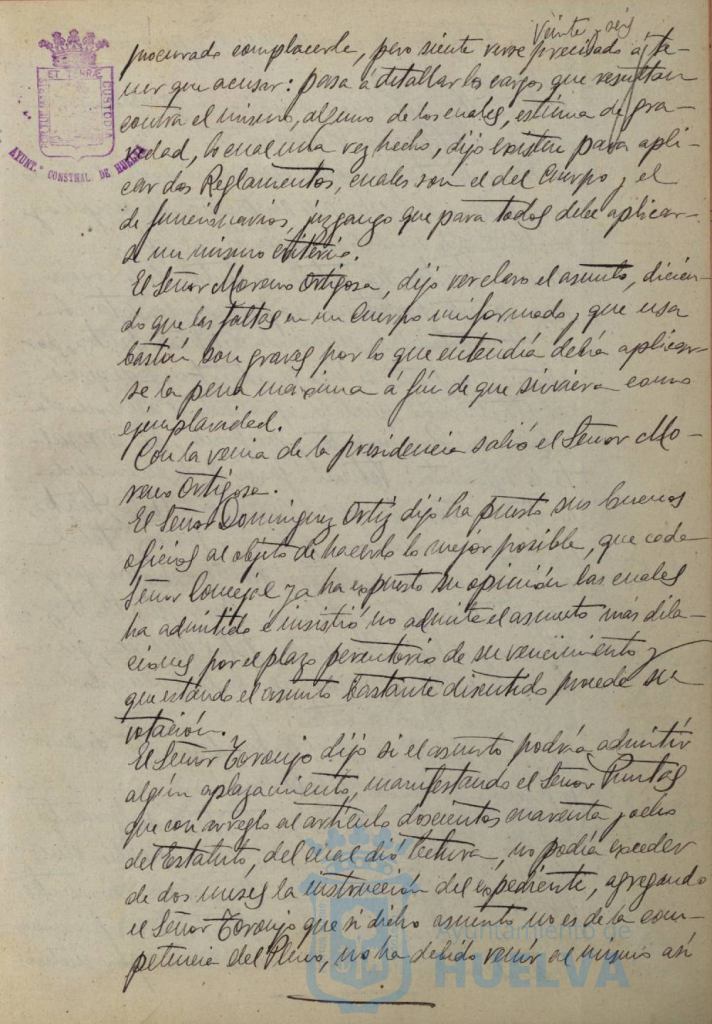 Veinte y seis
procurado complacerle, pero siente verse precisado á te-
ner que acusar: pasa á detallar los cargos que resultan
contra el mismo, alguno de los cuales, estima de gra-
vedad, lo cual una vez hecho, dijo existen para apli-
car dos Reglamentos, cuales son el del Cuerpo y el
de funcionarios, juzgango que para todos debe aplicar-
se un mismo criterio.
El Señor Moreno Ortigosa, dijo ver claro el asunto, dicien-
do que las faltas en un Cuerpo uniformado y que usa
bastón son graves por lo que entendía debía aplicar-
se la pena máxima á fin de que sirviera como
ejemplaridad.
Con la venia de la presidencia salió el Señor Mo-
reno Ortigosa.
El Señor Dominguez Ortiz dijo ha puesto sus buenos
oficios al objeto de hacerlo lo mejor posible, que cada
Señor Concejal ya ha expuesto su opinión las cuales
ha admitido é insistió no admite el asunto más dila-
ciones por el plazo perentorio de su vencimiento y
que estando el asunto bastante discutido procede su
votación.
El Señor Toronjo dijo si el asunto podría admitir
algún aplazamiento, manifestando el Señor Puntas
que con arreglo al artículo doscientos cuarenta y ocho
del Estatuto, del cual dió lectura, no podía exceder
de dos meses la instrucción del expediente, agregando
el Señor Toronjo que si dicho asunto no es de la com-
petencia del Pleno, no ha debido venir al mismo así
ET TERRÆ CUSTODIA
AYUNT.º CONSTNAL DE HUELVA
Ayuntamiento de
HUELVA